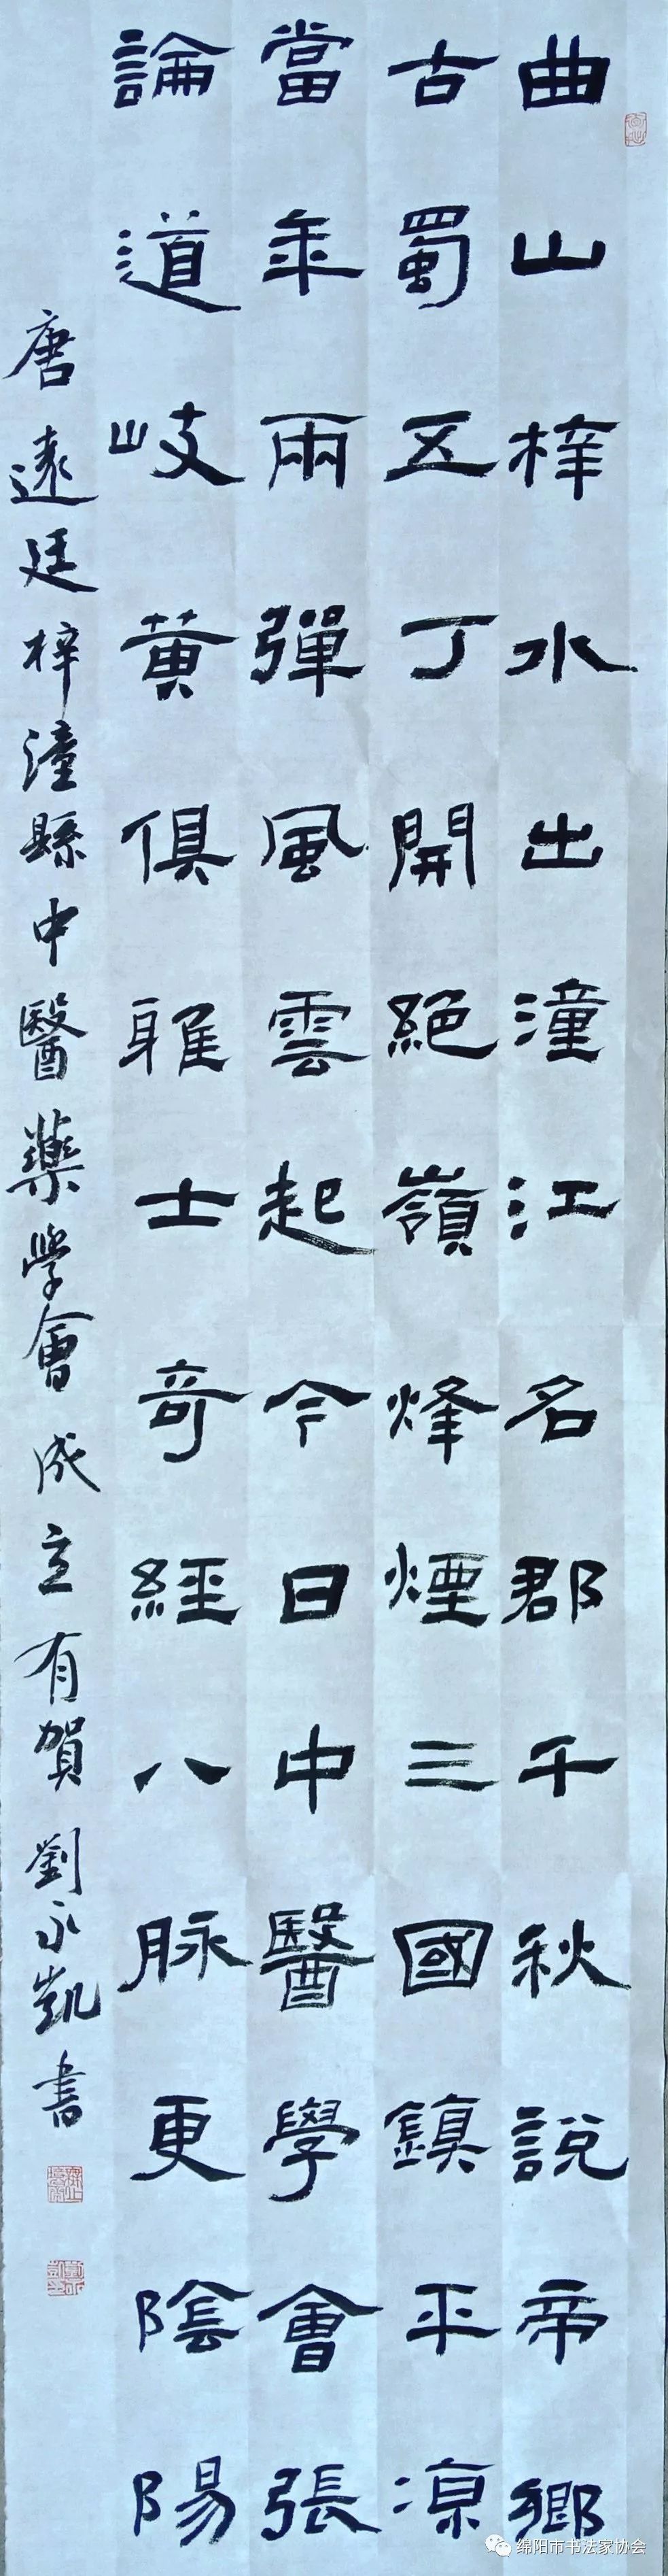 曲山梓水出潼江名郡千秋說帝鄉
古蜀五丁開絕嶺烽煙三國鎮平涼
當年兩彈風雲起今日中醫學會張
論道岐黃俱雅士奇經八脉更陰陽
唐遠廷梓潼縣中醫藥學會成立有賀劉永凱書
绵阳市书法家协会